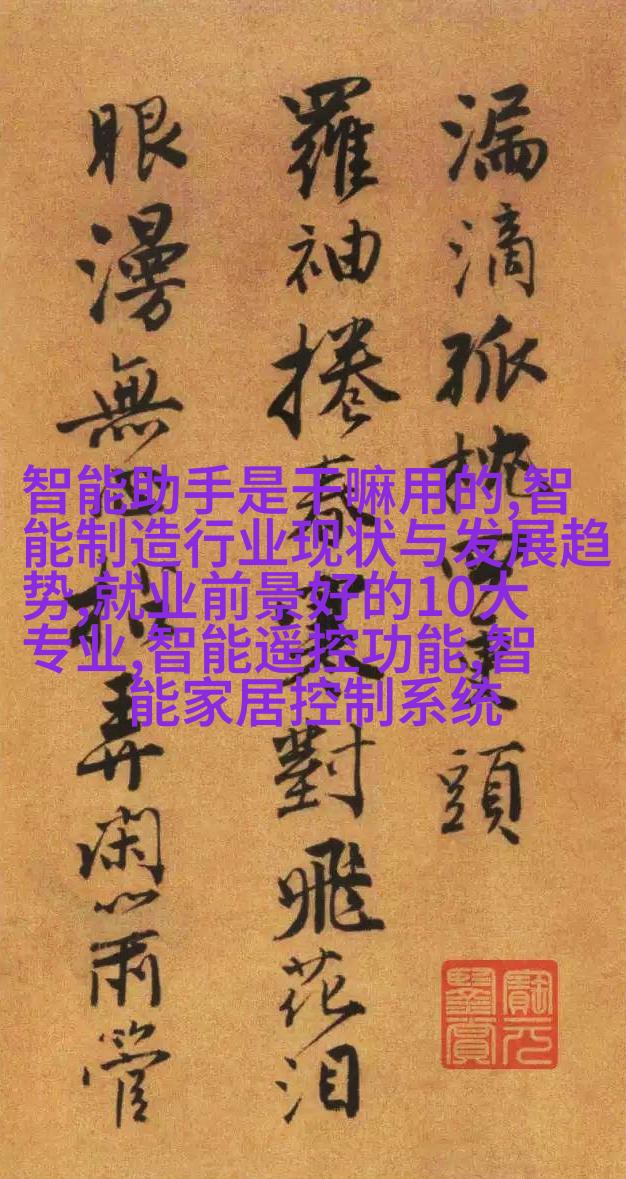 漏滴孤頭
羅袖捲春對飛花泪
眼漫無弄閑心
智能助手是干嘛用的,智
能制造行业现状与发展趋
势,就业前景好的10大
专业,智能遥控功能,智
能家居控制系统